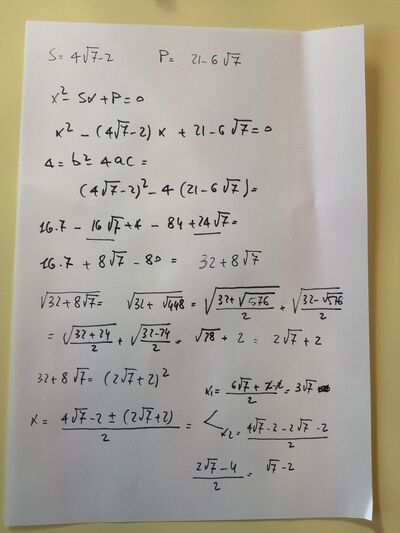 S= 4√7-2 P= 21-6√7
x²- Sx+P=0
x² - (4√7-2) x + 21-6√7=0
Δ= b²-4ac=
(4√7-2)²-4 (21-6√7)=
16.7 - 16√7+4 - 84 +24√7=
16.7 + 8√7 - 80 = 32+8√7
√32+8√7= √32+√448 = √(32+√576)/2 + √(32-√576)/2
= √(32+24)/2 + √(32-24)/2 = √28 + 2 = 2√7+2
32+8√7= (2√7+2)²
x= (4√7-2 ± (2√7+2))/2 = x₁= (6√7+2-2)/2= 3√7
x₂= (4√7-2-2√7-2)/2
(2√7-4)/2 = √7-2